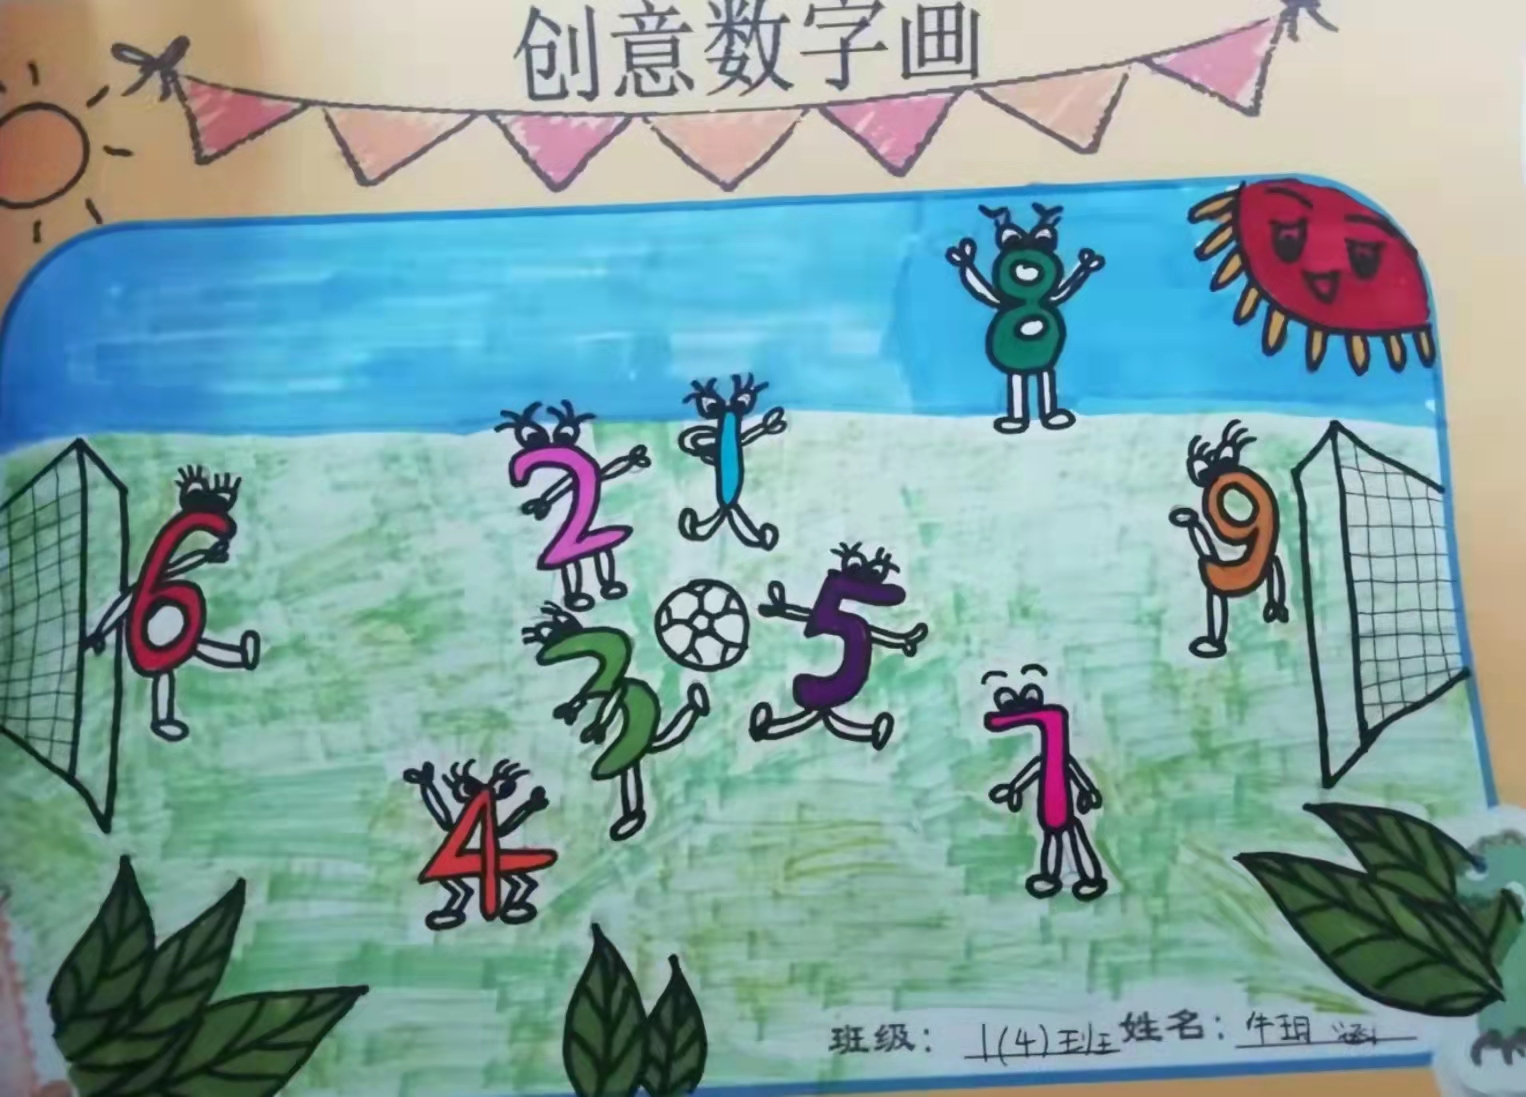 创意数字画
8
2 1
6 9
3 5
4 7
班级：1(4)班 姓名：牛玥涵